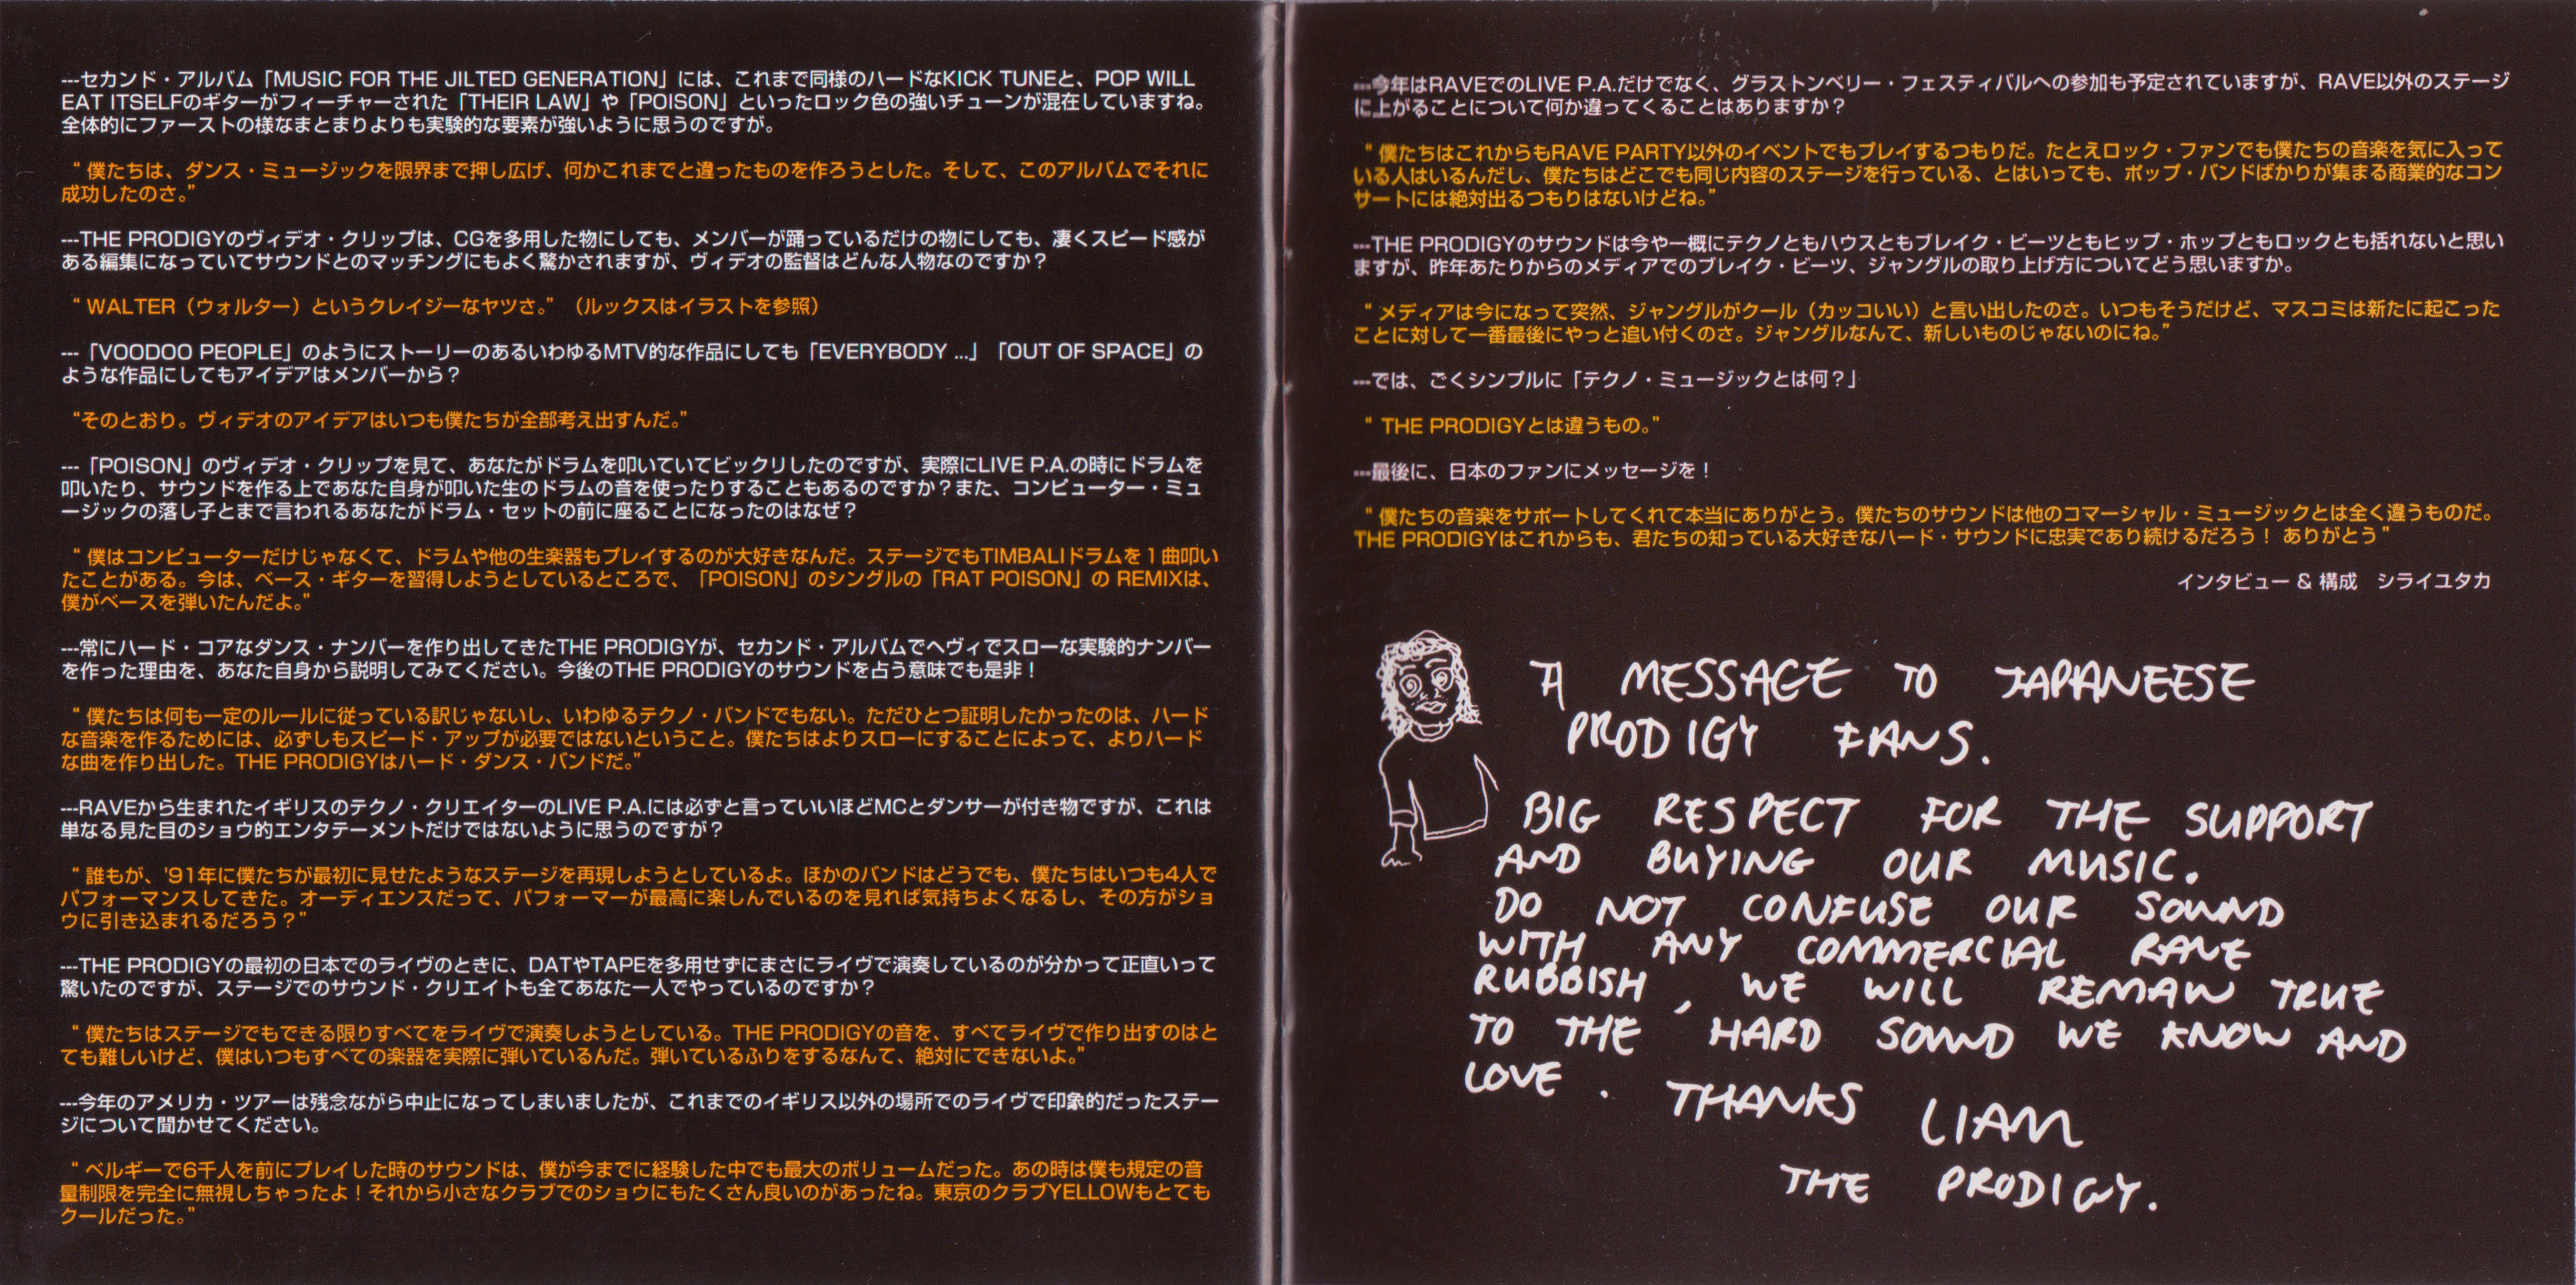 ---セカンド・アルバム「MUSIC FOR THE JILTED GENERATION」には、これまで同様のハードなKICK TUNEと、POP WILL
EAT ITSELFのギターがフィーチャーされた「THEIR LAW」や「POISON」といったロック色の強いチューンが混在していますね。
全体的にファーストの様なまとまりよりも実験的な要素が強いように思うのですが。
“ 僕たちは、ダンス・ミュージックを限界まで押し広げ、何かこれまでと違ったものを作ろうとした。そして、このアルバムでそれに
成功したのさ。”
---THE PRODIGYのヴィデオ・クリップは、CGを多用した物にしても、メンバーが踊っているだけの物にしても、凄くスピード感が
ある編集になっていてサウンドとのマッチングにもよく驚かされますが、ヴィデオの監督はどんな人物なのですか？
“ WALTER（ウォルター）というクレイジーなヤツさ。”（ルックスはイラストを参照）
---「VOODOO PEOPLE」のようにストーリーのあるいわゆるMTV的な作品にしても「EVERYBODY ...」「OUT OF SPACE」の
ような作品にしてもアイデアはメンバーから？
“そのとおり。ヴィデオのアイデアはいつも僕たちが全部考え出すんだ。”
---「POISON」のヴィデオ・クリップを見て、あなたがドラムを叩いていてビックリしたのですが、実際にLIVE P.A.の時にドラムを
叩いたり、サウンドを作る上であなた自身が叩いた生のドラムの音を使ったりすることもあるのですか？また、コンピューター・ミュ
ージックの落し子とまで言われるあなたがドラム・セットの前に座ることになったのはなぜ？
“ 僕はコンピューターだけじゃなくて、ドラムや他の生楽器もプレイするのが大好きなんだ。ステージでもTIMBALIドラムを１曲叩い
たことがある。今は、ベース・ギターを習得しようとしているところで、「POISON」のシングルの「RAT POISON」の REMIXは、
僕がベースを弾いたんだよ。”
---常にハード・コアなダンス・ナンバーを作り出してきたTHE PRODIGYが、セカンド・アルバムでヘヴィでスローな実験的ナンバー
を作った理由を、あなた自身から説明してみてください。今後のTHE PRODIGYのサウンドを占う意味でも是非！
“ 僕たちは何も一定のルールに従っている訳じゃないし、いわゆるテクノ・バンドでもない。ただひとつ証明したかったのは、ハード
な音楽を作るためには、必ずしもスピード・アップが必要ではないということ。僕たちはよりスローにすることによって、よりハード
な曲を作り出した。THE PRODIGYはハード・ダンス・バンドだ。”
---RAVEから生まれたイギリスのテクノ・クリエイターのLIVE P.A.には必ずと言っていいほどMCとダンサーが付き物ですが、これは
単なる見た目のショウ的エンタテーメントだけではないように思うのですが？
“ 誰もが、'91年に僕たちが最初に見せたようなステージを再現しようとしているよ。ほかのバンドはどうでも、僕たちはいつも4人で
パフォーマンスしてきた。オーディエンスだって、パフォーマーが最高に楽しんでいるのを見れば気持ちよくなるし、その方がショ
ウに引き込まれるだろう？”
---THE PRODIGYの最初の日本でのライヴのときに、DATやTAPEを多用せずにまさにライヴで演奏しているのが分かって正直いって
驚いたのですが、ステージでのサウンド・クリエイトも全てあなた一人でやっているのですか？
“ 僕たちはステージでもできる限りすべてをライヴで演奏しようとしている。THE PRODIGYの音を、すべてライヴで作り出すのはと
ても難しいけど、僕はいつもすべての楽器を実際に弾いているんだ。弾いているふりをするなんて、絶対にできないよ。”
---今年のアメリカ・ツアーは残念ながら中止になってしまいましたが、これまでのイギリス以外の場所でのライヴで印象的だったステー
ジについて聞かせてください。
“ ベルギーで6千人を前にプレイした時のサウンドは、僕が今までに経験した中でも最大のボリュームだった。あの時は僕も規定の音
量制限を完全に無視しちゃったよ！それから小さなクラブでのショウにもたくさん良いのがあったね。東京のクラブYELLOWもとても
クールだった。”
---今年はRAVEでのLIVE P.A.だけでなく、グラストンベリー・フェスティバルへの参加も予定されていますが、RAVE以外のステージ
に上がることについて何か違ってくることはありますか？
“ 僕たちはこれからもRAVE PARTY以外のイベントでもプレイするつもりだ。たとえロック・ファンでも僕たちの音楽を気に入って
いる人はいるんだし、僕たちはどこでも同じ内容のステージを行っている、とはいっても、ポップ・バンドばかりが集まる商業的なコン
サートには絶対出るつもりはないけどね。”
---THE PRODIGYのサウンドは今や一概にテクノともハウスともブレイク・ビーツともヒップ・ホップともロックとも括れないと思い
ますが、昨年あたりからのメディアでのブレイク・ビーツ、ジャングルの取り上げ方についてどう思いますか。
“ メディアは今になって突然、ジャングルがクール（カッコいい）と言い出したのさ。いつもそうだけど、マスコミは新たに起こった
ことに対して一番最後にやっと追い付くのさ。ジャングルなんて、新しいものじゃないのにね。”
---では、ごくシンプルに「テクノ・ミュージックとは何？」
“ THE PRODIGYとは違うもの。”
---最後に、日本のファンにメッセージを！
“ 僕たちの音楽をサポートしてくれて本当にありがとう。僕たちのサウンドは他のコマーシャル・ミュージックとは全く違うものだ。
THE PRODIGYはこれからも、君たちの知っている大好きなハード・サウンドに忠実であり続けるだろう！ ありがとう ”
インタビュー & 構成　シライユタカ
A MESSAGE TO JAPANEESE
PRODIGY FANS.
BIG RESPECT FOR THE SUPPORT
AND BUYING OUR MUSIC.
DO NOT CONFUSE OUR SOUND
WITH ANY COMMERCIAL RAVE
RUBBISH, WE WILL REMAIN TRUE
TO THE HARD SOUND WE KNOW AND
LOVE. THANKS LIAM
THE PRODIGY.